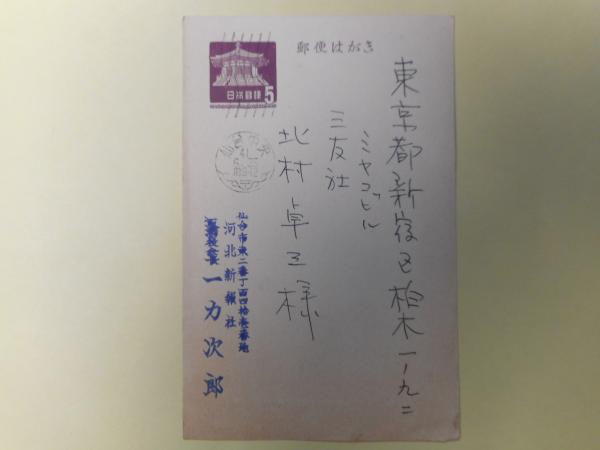 郵便はがき
日本郵便
5
東京都新宿区柏木一ノ九二
ミヤコビル
三友社
北村卓三様
仙台市東二番丁百四拾壱番地
河北新報社
一力次郎